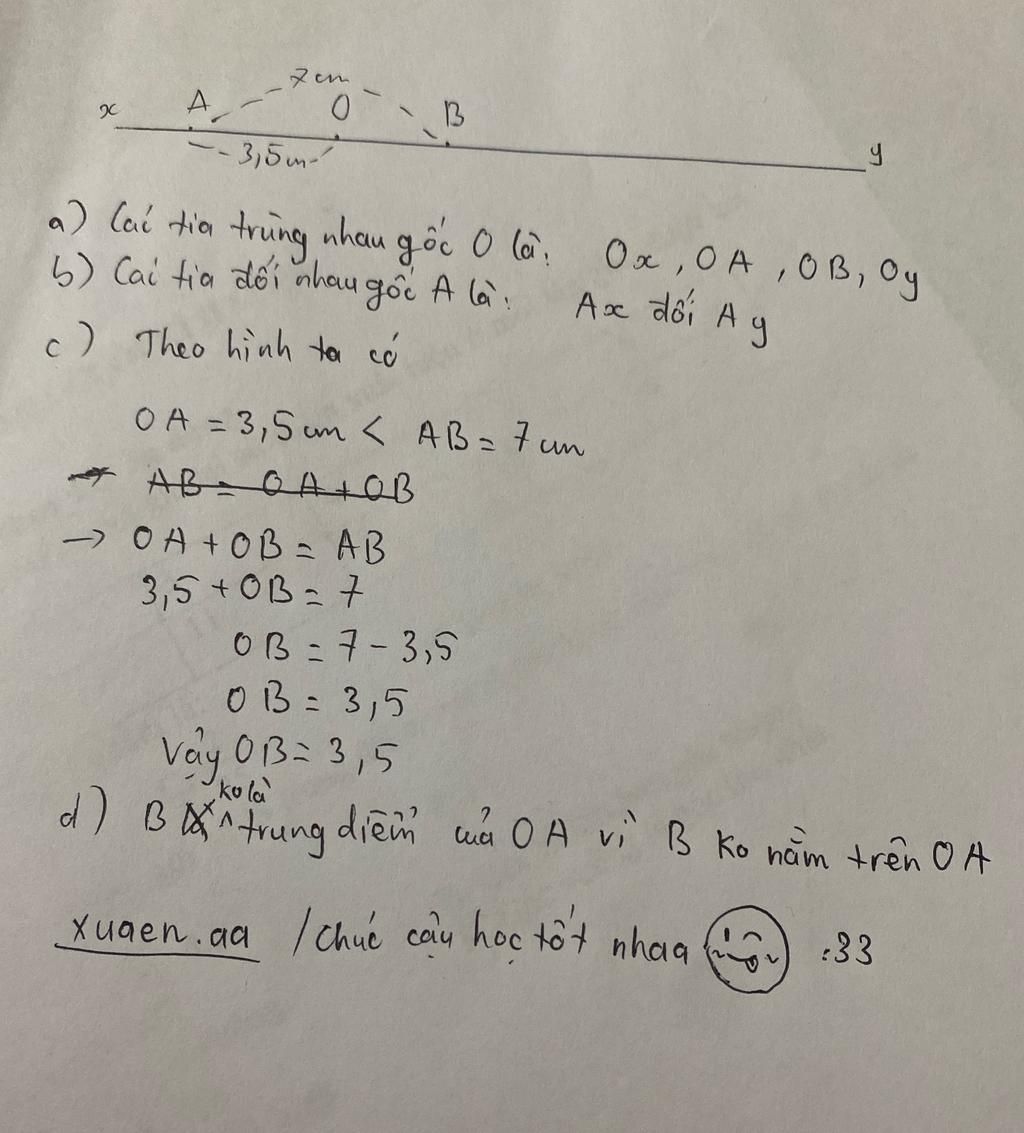 7cm
x A O B y
3,5cm
a) Các tia trùng nhau gốc O là: Ox, OA, OB, Oy
b) Các tia đối nhau gốc A là: Ax đối Ay
c) Theo hình ta có
OA = 3,5cm < AB = 7cm
→ AB = OA + OB
→ OA + OB = AB
3,5 + OB = 7
OB = 7 - 3,5
OB = 3,5
Vậy OB = 3,5
d) B ko là trung điểm của OA vì B ko nằm trên OA
xuaen.aa /chúc cậu học tốt nhaa :33